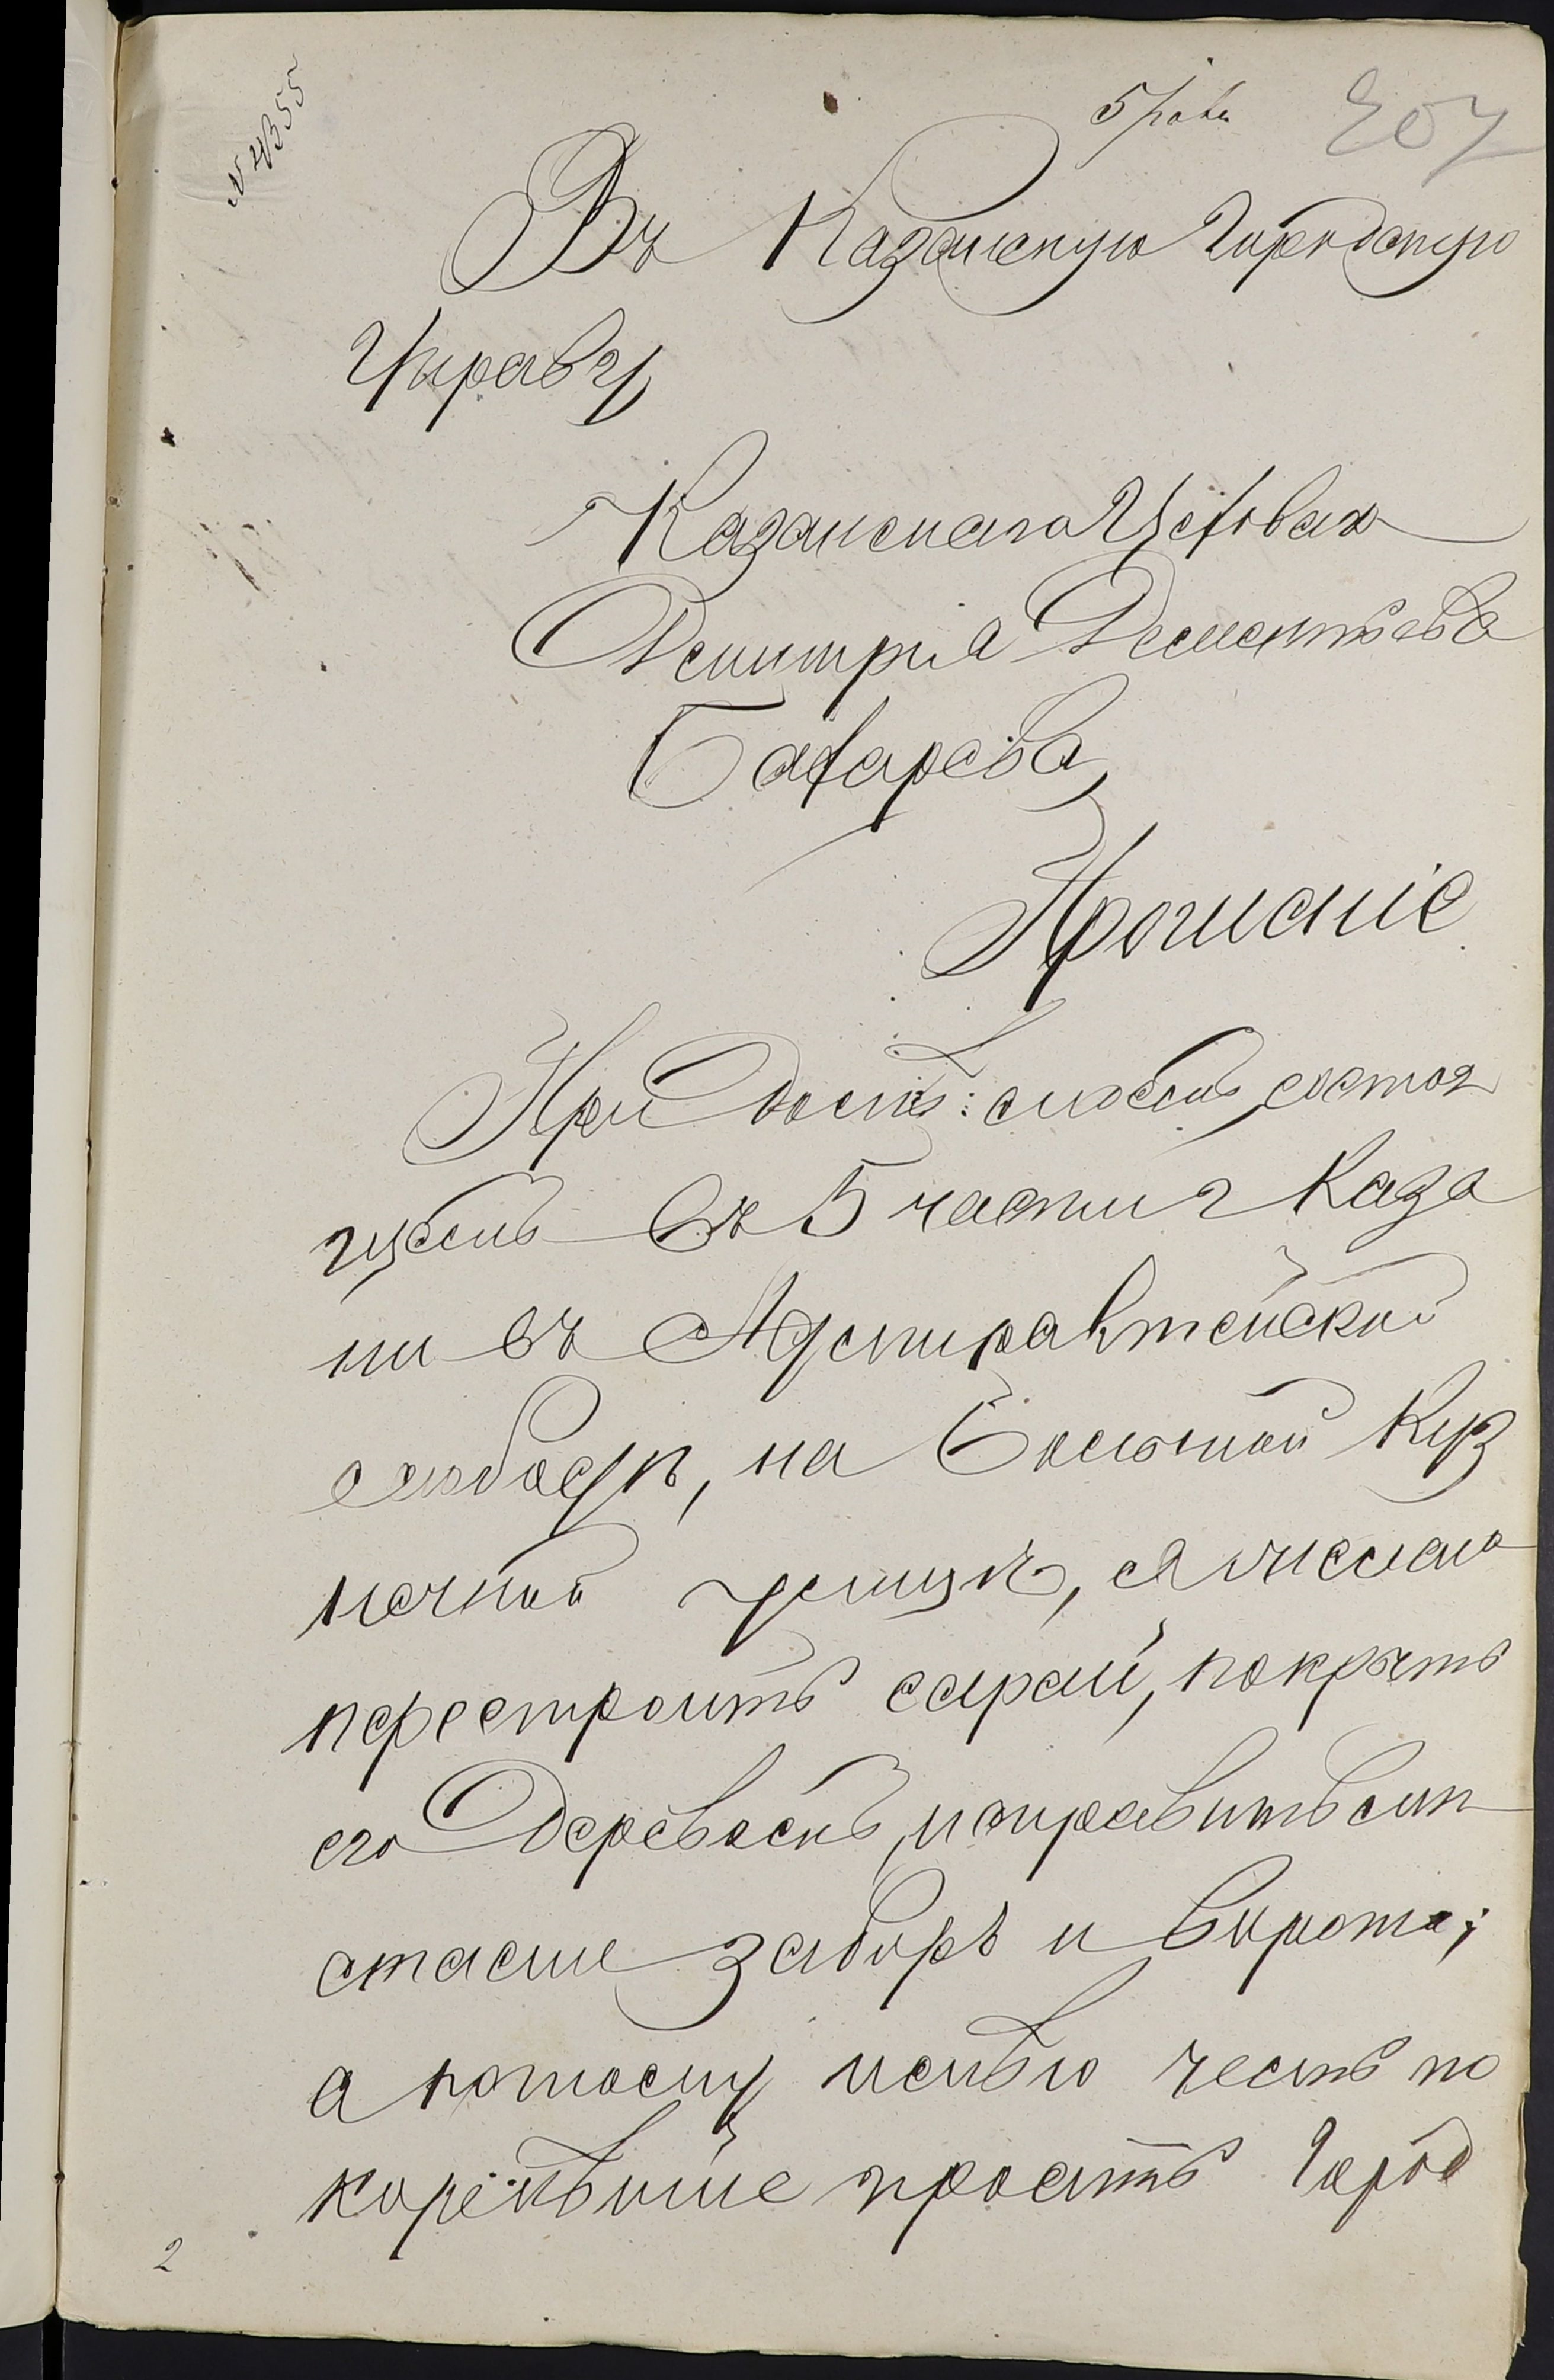 № 4355
207
Въ Казанскую Городскую
Управу
Казанскаго Цеховаго
Дмитрія Дементьева
Бахарева
Прошеніе
При домѣ моемъ, состоя
щемъ въ 5 части г. Каза
ни въ Адмиралтейской
слободѣ, на Большой Куз
нечной улицѣ, я желаю
перестроить сарай, покрыть
его деревомъ, исправить съ
заборъ и ворота;
а потому имѣю честь по
корнѣйше просить Город
2